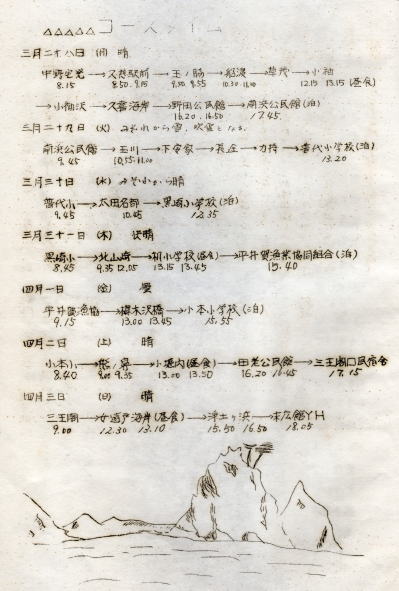 △△△△△ コースタイム
三月二十八日 (月) 晴
中野宅発 → 久慈駅前 → 玉ノ脇 → → → 小袖
8.15 8.50 9.15 9.50 9.55 10.30 11.00 12.15 13.15 (昼食)
→ 小袖沢 → 久喜海岸 → 野田公民館 → 前浜公民館 (泊)
16.20 16.50 17.45
三月二十九日 (火) みぞれから雪、吹雪となる
前浜公民館 → 玉川 → 下安家 → → 力持 → 普代小学校 (泊)
9.45 10.55 11.00 13.20
三月三十日 (水) みぞれから晴
普代小 → 太田名部 → 黒崎小学校 (泊)
9.45 10.45 12.35
三月三十一日 (木) 快晴
黒崎小 → 北山崎 → 机小学校 (昼食) → 平井賀漁業協同組合 (泊)
8.45 9.35 12.05 13.15 13.45 15.40
四月一日 (金) 曇
平井賀漁協 → 橋 → 小本小学校 (泊)
9.15 13.00 13.45 15.55
四月二日 (土) 晴
小本小 → 熊ノ鼻 → 小堀内 (昼食) → 田老公民館 → 三王閣口民宿舎
8.40 9.00 9.35 13.00 13.50 16.20 16.45 17.15
四月三日 (日) 晴
三王閣 → 女遊戸海岸 (昼食) → 浄土ヶ浜 → 末広館YH
9.00 12.30 13.10 15.50 16.50 18.05